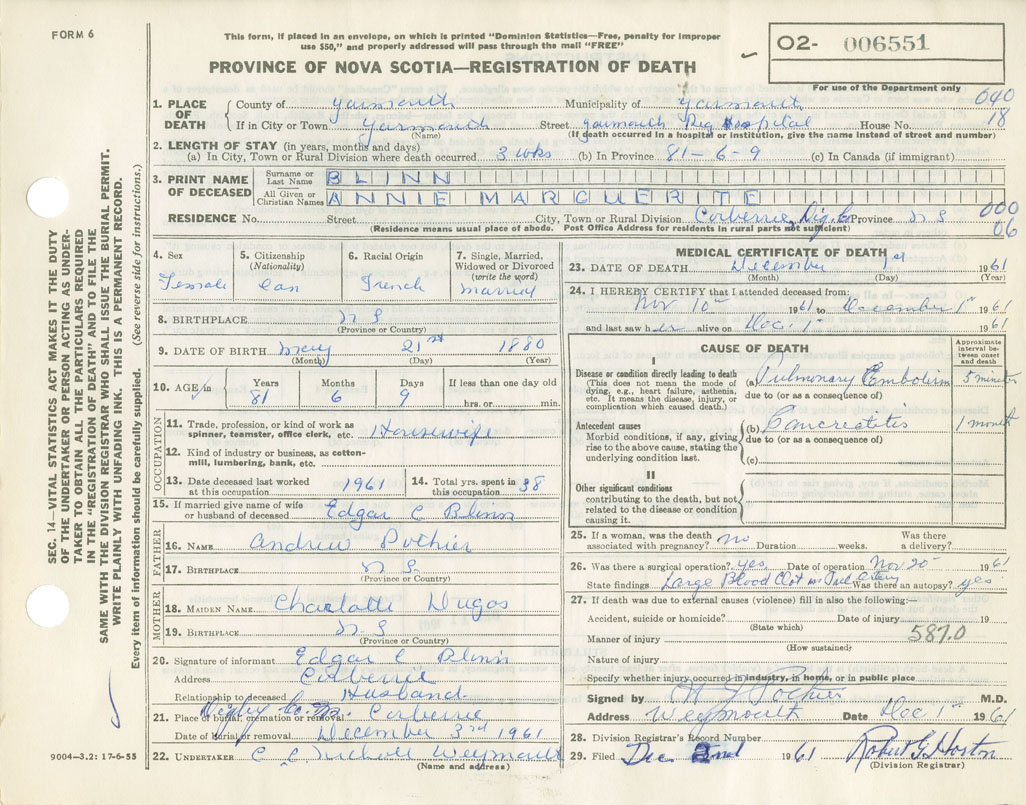 FORM 6
This form, if placed in an envelope, on which is printed "Dominion Statistics—Free, penalty for improper
use $50," and properly addressed will pass through the mail "FREE"
O2- 006551
PROVINCE OF NOVA SCOTIA—REGISTRATION OF DEATH
For use of the Department only
040
18
1. PLACE OF DEATH County of Yarmouth Municipality of Yarmouth
If in City or Town Yarmouth Street Yarmouth Reg Hospital House No.
(Name) (If death occurred in a hospital or institution, give the name instead of street and number)
2. LENGTH OF STAY (in years, months and days)
(a) In City, Town or Rural Division where death occurred 3 wks (b) In Province 81-6-9 (c) In Canada (if immigrant)
3. PRINT NAME OF DECEASED Surname or Last Name BLINN
All Given or Christian Names ANNIE MARGUERITE
RESIDENCE No. Street City, Town or Rural Division Corberrie, Dig. Co Province N S
000
06
(Residence means usual place of abode. Post Office Address for residents in rural parts not sufficient)
4. Sex Female
5. Citizenship (Nationality) Can
6. Racial Origin French
7. Single, Married, Widowed or Divorced (write the word) Married
8. BIRTHPLACE N S
(Province or Country)
9. DATE OF BIRTH May 21st 1880
(Month) (Day) (Year)
10. AGE in Years 81 Months 6 Days 9 If less than one day old hrs. or min.
OCCUPATION
11. Trade, profession, or kind of work as spinner, teamster, office clerk, etc. Housewife
12. Kind of industry or business, as cotton-mill, lumbering, bank, etc.
13. Date deceased last worked at this occupation 1961
14. Total yrs. spent in this occupation 38
15. If married give name of wife or husband of deceased Edgar C Blinn
FATHER
16. NAME Andrew Pothier
17. BIRTHPLACE N S.
(Province or Country)
MOTHER
18. MAIDEN NAME Charlotte Dugas
19. BIRTHPLACE N S
(Province or Country)
20. Signature of informant Edgar C Blinn
Address Corberrie
Relationship to deceased Husband
21. Place of burial, cremation or removal Digby Co. Corberrie
Date of burial or removal December 3rd 1961
22. UNDERTAKER C. C. Nicholl Weymouth
(Name and address)
MEDICAL CERTIFICATE OF DEATH
23. DATE OF DEATH December 1st 1961
(Month) (Day) (Year)
24. I HEREBY CERTIFY that I attended deceased from:
Nov 10th 1961 to December 1st 1961
and last saw her alive on Dec. 1st 1961
CAUSE OF DEATH
Approximate interval between onset and death
I
Disease or condition directly leading to death
(This does not mean the mode of dying, e.g., heart failure, asthenia, etc. It means the disease, injury, or complication which caused death.)
(a) Pulmonary Embolism 5 minutes
due to (or as a consequence of)
Antecedent causes
Morbid conditions, if any, giving rise to the above cause, stating the underlying condition last.
(b) Pancreatitis 1 month
due to (or as a consequence of)
(c)
II
Other significant conditions
contributing to the death, but not related to the disease or condition causing it.
25. If a woman, was the death associated with pregnancy? No Duration weeks. Was there a delivery?
26. Was there a surgical operation? yes Date of operation Nov 20 1961
State findings Large Blood Clot in Pul artery Was there an autopsy? yes
27. If death was due to external causes (violence) fill in also the following:—
Accident, suicide or homicide? Date of injury 19
(State which)
Manner of injury 587.0
(How sustained)
Nature of injury
Specify whether injury occurred in industry, in home, or in public place
Signed by Pothier M.D.
Address Weymouth Date Dec 1st 1961
28. Division Registrar's Record Number
29. Filed Dec 2nd 1961 Robert G. Horton
(Division Registrar)
SEC. 14—VITAL STATISTICS ACT MAKES IT THE DUTY
OF THE UNDERTAKER OR PERSON ACTING AS UNDER-
TAKER TO OBTAIN ALL THE PARTICULARS REQUIRED
IN THE "REGISTRATION OF DEATH" AND TO FILE THE
SAME WITH THE DIVISION REGISTRAR WHO SHALL ISSUE THE BURIAL PERMIT.
WRITE PLAINLY WITH UNFADING INK. THIS IS A PERMANENT RECORD.
Every item of information should be carefully supplied. (See reverse side for instructions.)
9004—3.2: 17-6-55